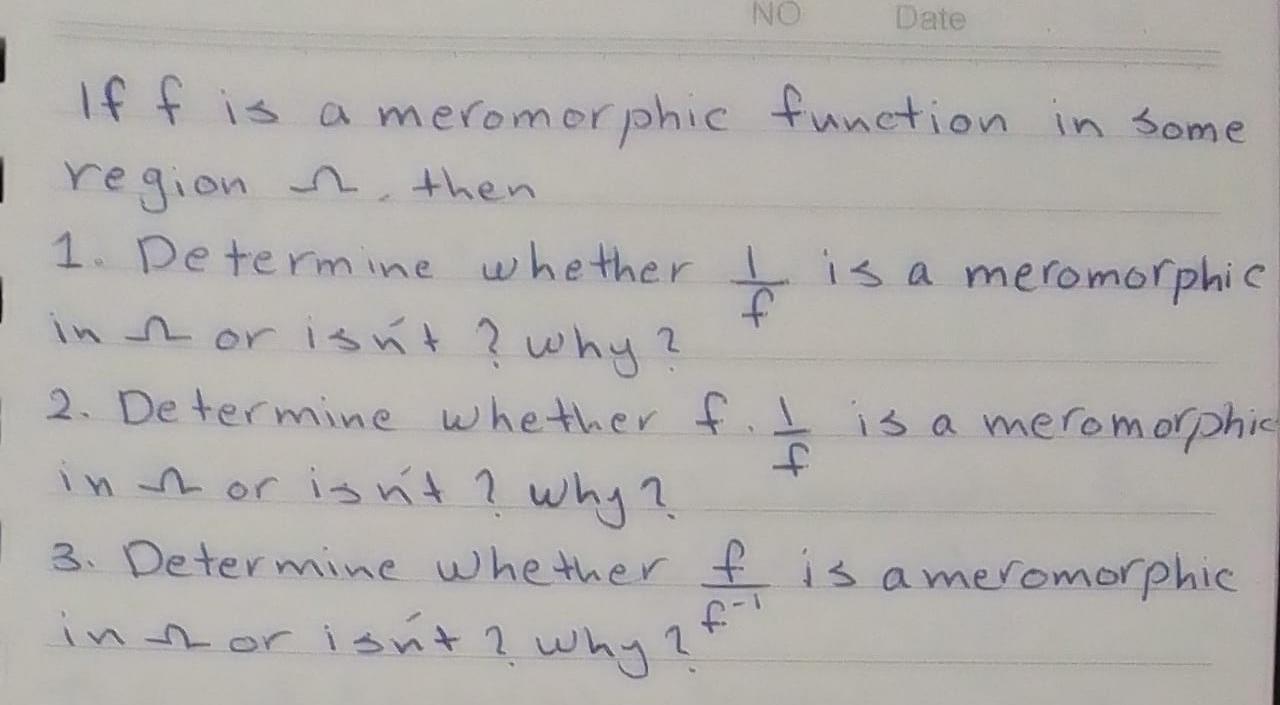 NO Date
If f is a meromorphic function in some
region Ω. then
1. Determine whether 1/f is a meromorphic
in Ω or isn't ? why?
2. Determine whether f . 1/f is a meromorphic
in Ω or isn't ? why?
3. Determine whether f/f⁻¹ is a meromorphic
in Ω or isn't ? why?